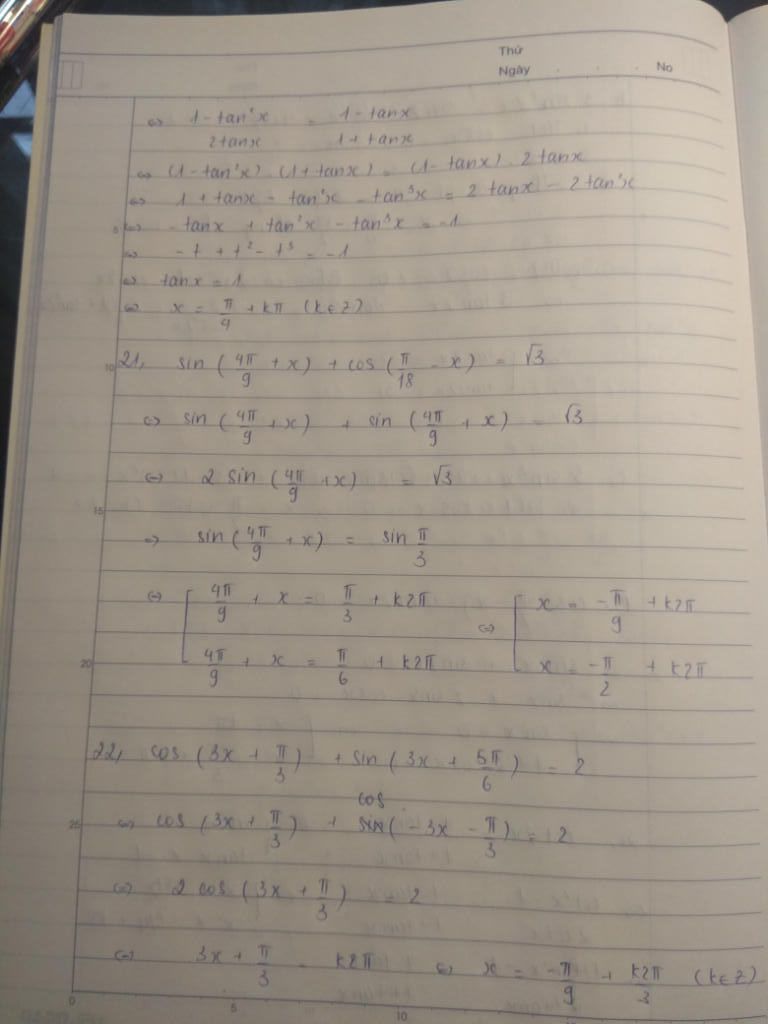 Thứ
Ngày No
⇔ 1 - tan²x / 2tanx = 1 - tanx / 1 + tanx
⇔ (1 - tan²x) (1 + tanx) = (1 - tanx) . 2tanx
⇔ 1 + tanx - tan²x - tan³x = 2tanx - 2tan²x
5 ⇔ - tanx + tan²x - tan³x = -1
⇔ -t + t² - t³ = -1
⇔ tanx = 1
⇔ x = π/4 + kπ (k∈Z)
10 21, sin(4π/9 + x) + cos(π/18 - x) = √3
⇔ sin(4π/9 + x) + sin(4π/9 + x) = √3
⇔ 2 sin(4π/9 + x) = √3
15
⇒ sin(4π/9 + x) = sin π/3
⇔ [ 4π/9 + x = π/3 + k2π ⇔ [ x = -π/9 + k2π
20 4π/9 + x = π/6 + k2π x = -π/2 + k2π
22, cos(3x + π/3) + sin(3x + 5π/6) = 2
cos
25 ⇔ cos(3x + π/3) + sin(-3x - π/3) = 2
⇔ 2 cos(3x + π/3) = 2
⇔ 3x + π/3 = k2π ⇔ x = -π/9 + k2π/3 (k∈Z)
0 5 10